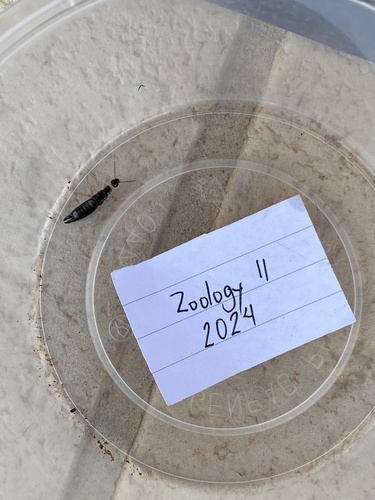 Zoology II
2024